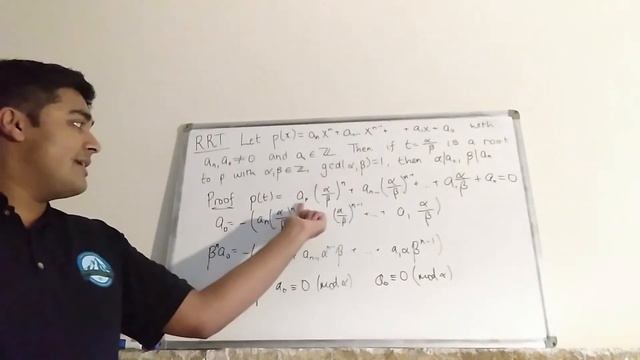 RRT Let p(x) = aₙxⁿ + aₙ₋₁xⁿ⁻¹ + .. + a₁x + a₀ with
aₙ, a₀ ≠ 0 and aᵢ ∈ ℤ. Then if t = α/β is a root
to p with α, β ∈ ℤ, gcd(α, β) = 1, then α|a₀, β|aₙ
Proof p(t) = aₙ(α/β)ⁿ + aₙ₋₁(α/β)ⁿ⁻¹ + .. + a₁ α/β + a₀ = 0
a₀ = -(aₙ(α/β)ⁿ (α/β)ⁿ⁻¹ + .. + a₁ α/β)
βⁿa₀ = -( aₙ₋₁αⁿ⁻¹β + .. + a₁αβⁿ⁻¹)
a₀ ≡ 0 (mod α) a₀ ≡ 0 (mod α)